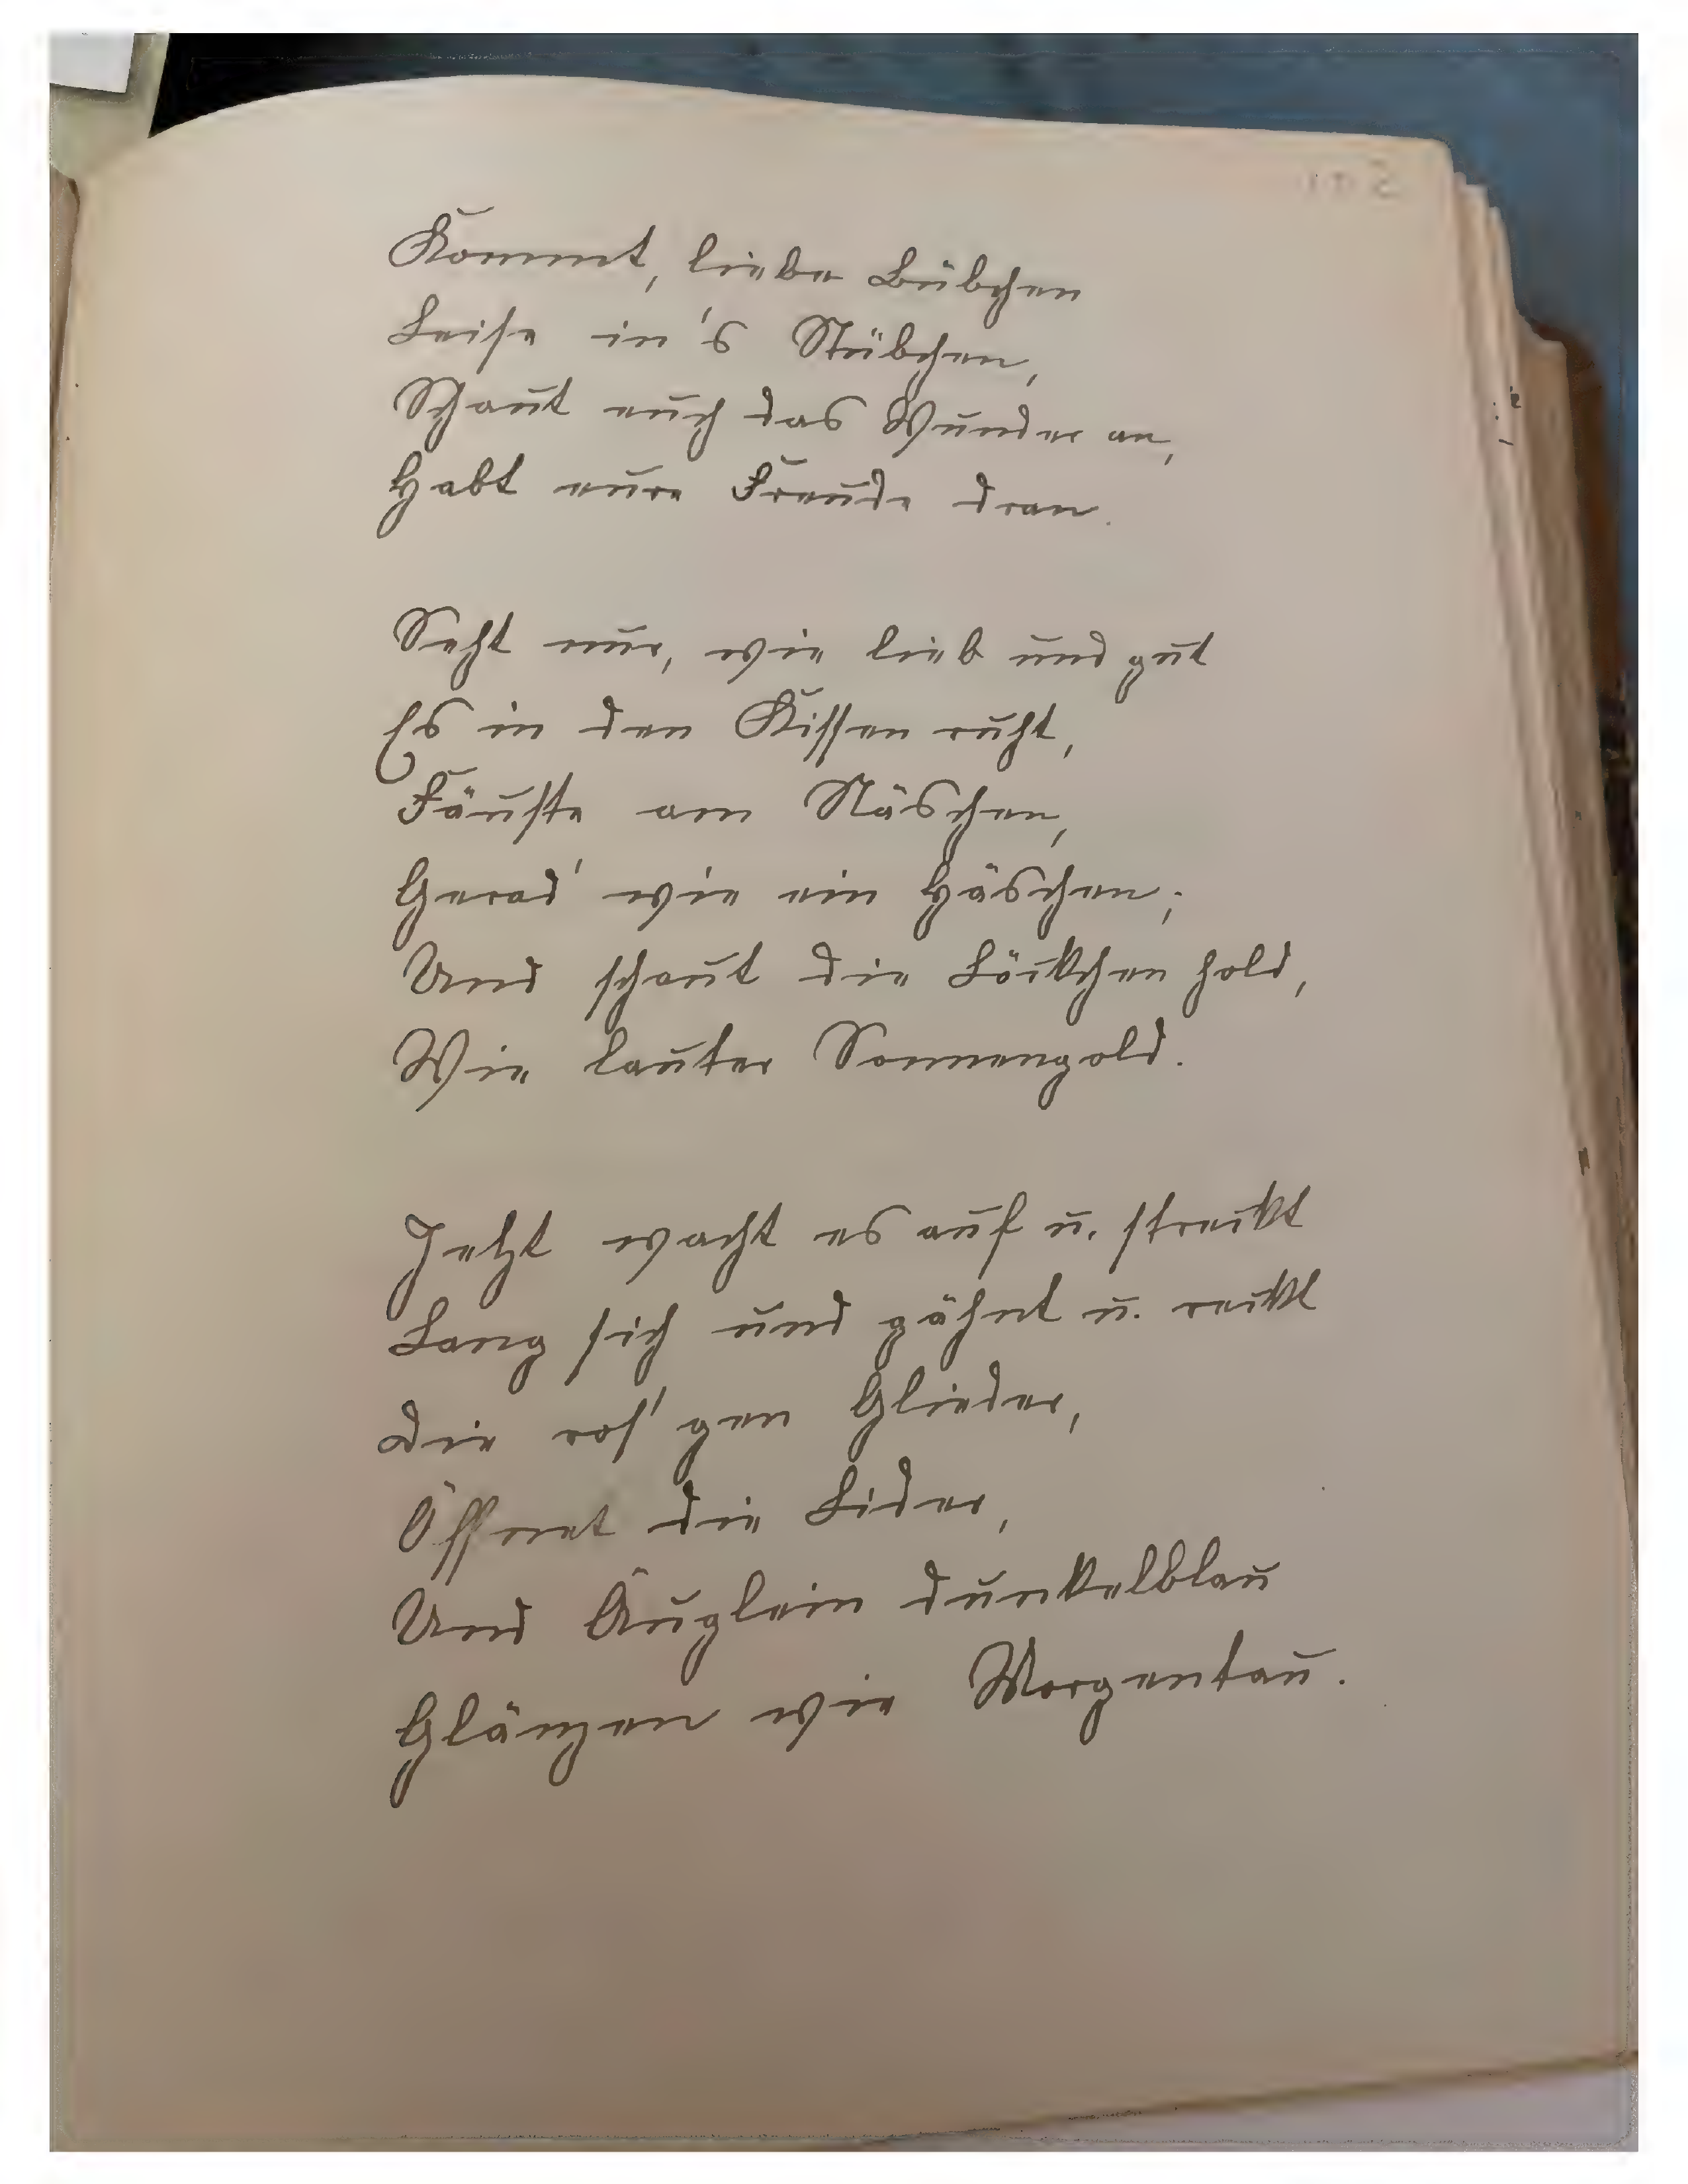 Kommt, liebe Bübchen
Leise in's Stübchen,
Schaut euch das Wunder an,
Habt eure Freude dran.
Seht nur, wie lieb und gut
Es in den Kissen ruht,
Fäuste am Näschen,
Gerad' wie ein Häschen;
Und schaut die Löckchen hold,
Wie lauter Sonnengold.
Jetzt wacht es auf u. streckt
Lang sich und gähnt u. reckt
Die ros'gen Glieder,
Öffnet die Lider,
Und Äuglein dunkelblau
Glänzen wie Morgentau.